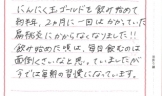 にんにく玉ゴールドを飲み始めて
約半年、2ヶ月に一回はかかっていた
扁桃炎にかからなくなりました!!
飲み始めた頃は、毎日飲むのは
面倒くさいなと思っていましたが
今では毎朝の習慣になっています。